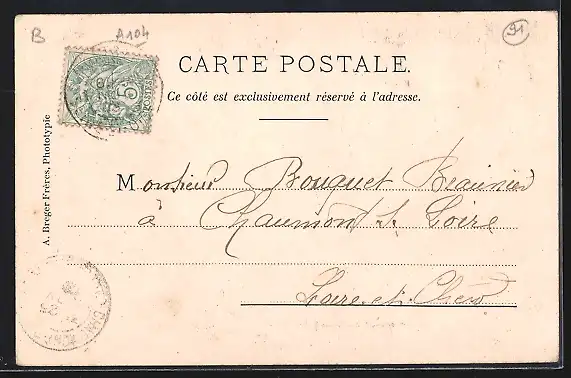 B
A104
91
CARTE POSTALE.
Ce côté est exclusivement réservé à l'adresse.
A. Breger Frères, Phototypie
Monsieur Bouquet Beaunier
à Chaumont s. Loire
Loire-et-Cher